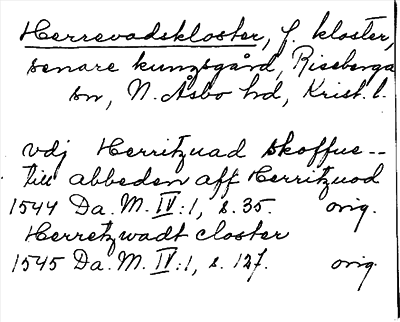 Herrevadskloster, f. kloster,
senare kungsgård, Riseberga
sn, N. Åsbo hd, Krist. l.
vdj Herritzuad skoffue --
till abbeden aff Herritzuod
1544 Da. M. IV:1, s. 35. orig.
Herretzwadt closter
1545 Da. M. IV:1, s. 127. orig.